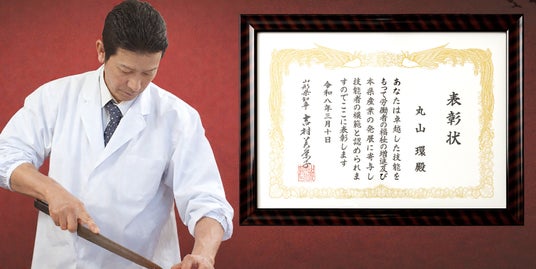 表彰状
丸山 環殿
あなたは卓越した技能を
もって労働者の福祉の増進及び
本県産業の発展に寄与し
技能者の模範と認められま
すのでここに表彰します
令和八年三月十日
山形県知事 吉村美栄子